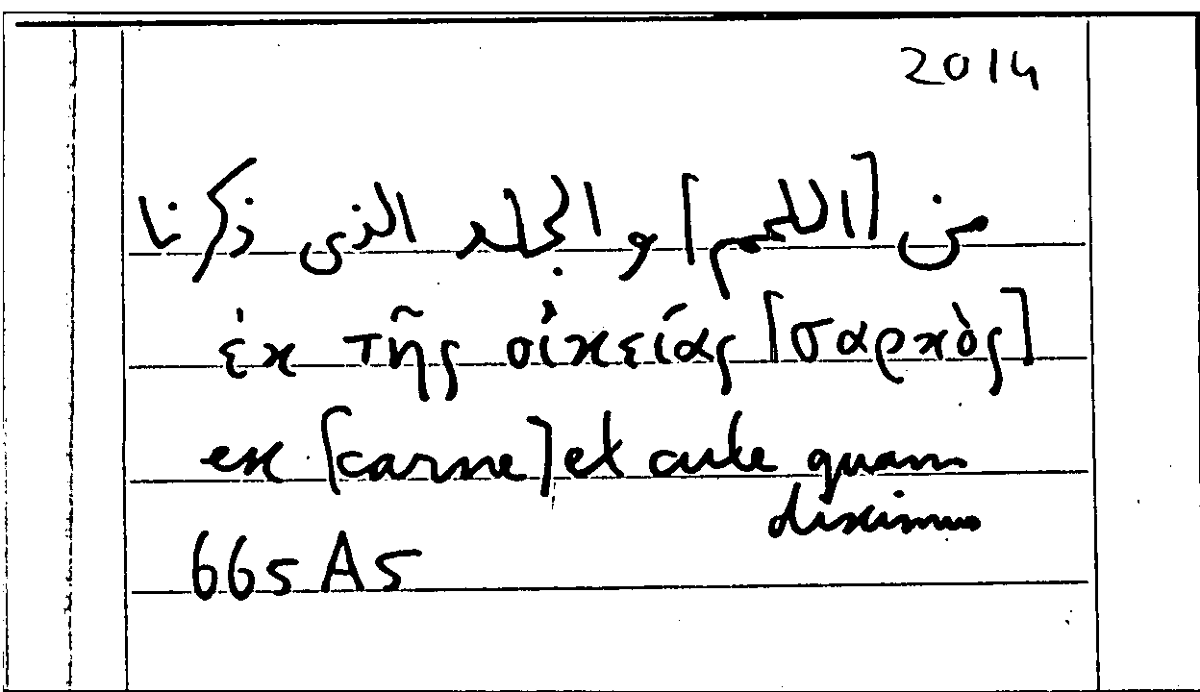 2014
من [اللحم] والجلد الذى ذكرنا
ἐκ τῆς οἰκείας [σαρκὸς]
ex [carne] et cute quam
diximus
665 A5